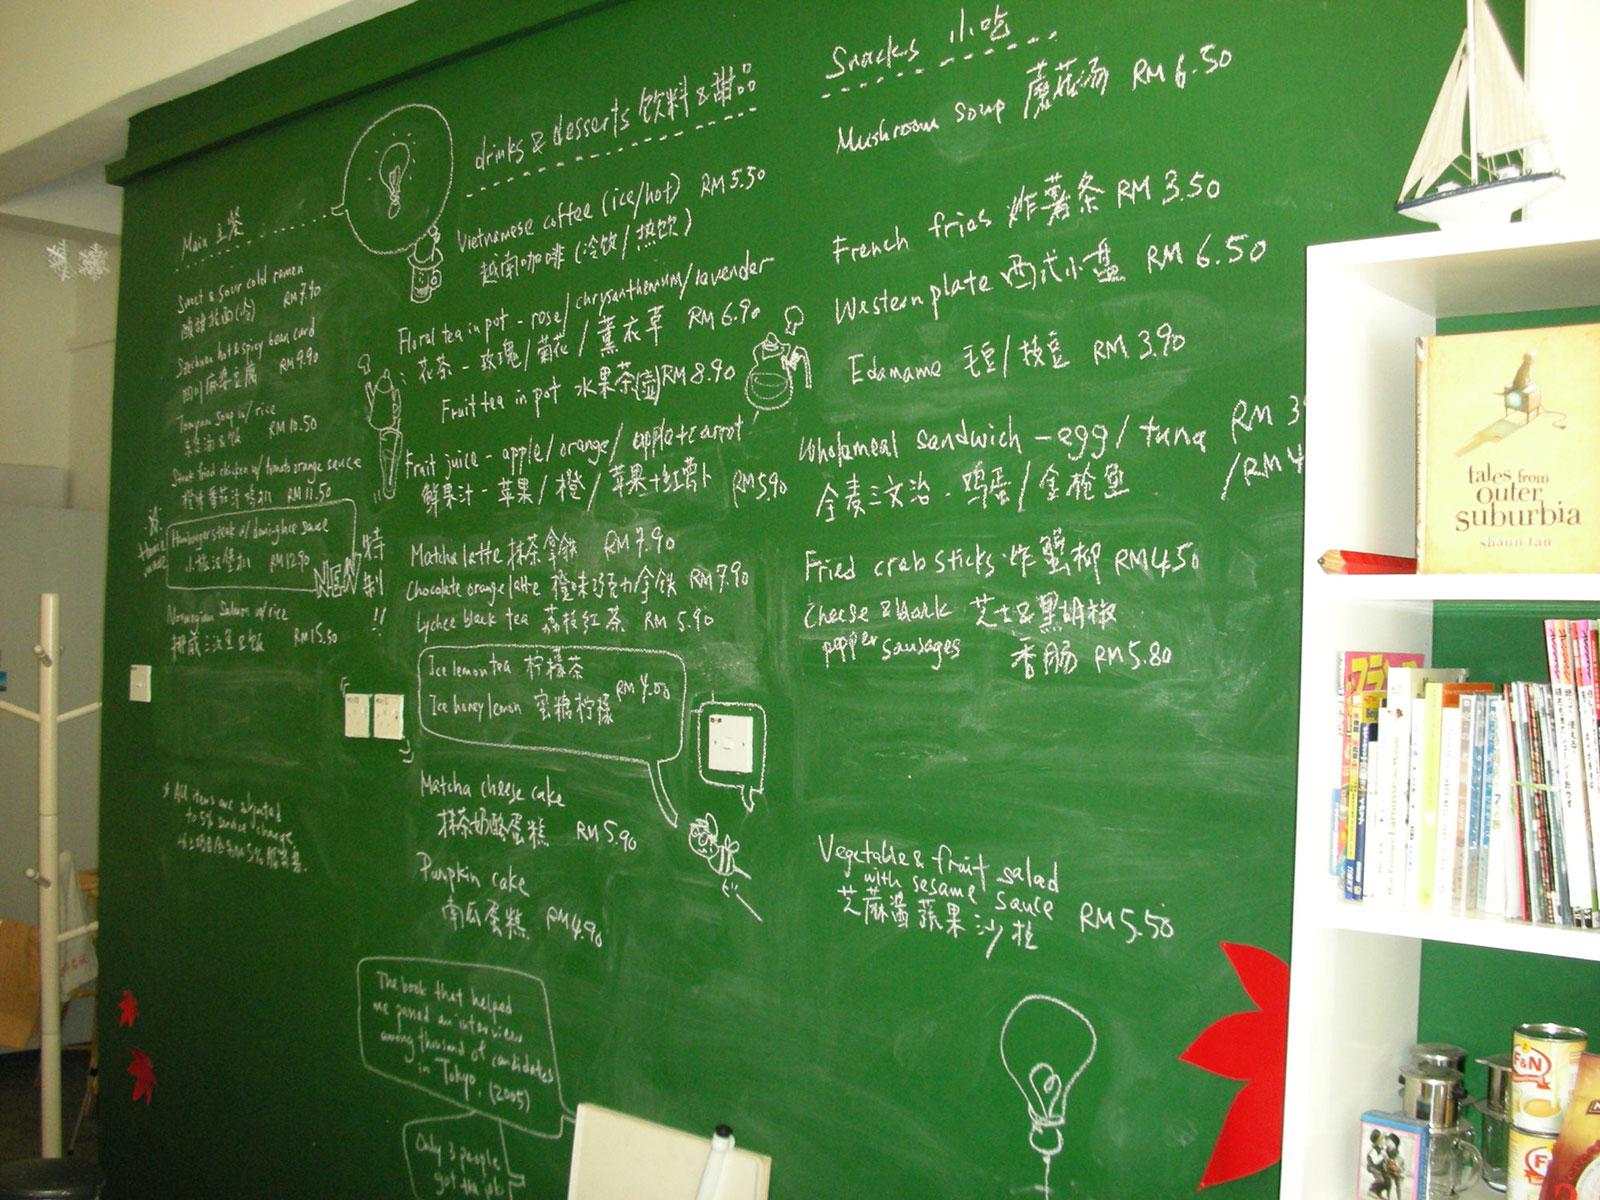 Main 主餐
Sweet & sour cold ramen
RM 7.90
Szechuan hot & spicy bean curd
四川麻婆豆腐 RM 9.90
Tomyam soup w/ rice
RM 10.50
fried chicken w/ tomato orange sauce
橙味蕃茄汁鸡扒 RM 11.50
Hamburger steak w/ demi-glace sauce
RM 12.90
NEW
特
制
!!
Norwegian salmon w/ rice
挪威三文鱼 RM 15.50
* All items are subjected
to 5% service charge
drinks & desserts 饮料 & 甜品
Vietnamese coffee (ice/hot) RM 5.50
越南咖啡 (冷饮/热饮)
Floral tea in pot - rose/chrysanthemum/lavender
花茶 - 玫瑰/菊花/薰衣草 RM 6.90
Fruit tea in pot 水果茶(壶) RM 8.90
Fruit juice - apple/orange/apple+carrot
鲜果汁 - 苹果/橙/苹果+红萝卜 RM 5.90
Matcha latte 抹茶拿铁 RM 7.90
Chocolate orange latte 橙味巧克力拿铁 RM 7.90
Lychee black tea 荔枝红茶 RM 5.90
Ice lemon tea 柠檬茶
Ice honey lemon 蜜糖柠檬 RM 4.00
Matcha cheese cake
抹茶奶酪蛋糕 RM 5.90
Pumpkin cake
南瓜蛋糕 RM 4.90
The book that helped
me passed an interview
among thousand of candidates
in Tokyo. (2005)
Only 3 people
got the job
Snacks 小吃
Mushroom soup 蘑菇汤 RM 6.50
French fries 炸薯条 RM 3.50
Western plate 西式小盘 RM 6.50
Edamame 毛豆/枝豆 RM 3.90
Wholemeal sandwich - egg/tuna RM 3
全麦三文治 - 鸡蛋/金枪鱼 /RM 4
Fried crab sticks 炸蟹柳 RM 4.50
Cheese & black 芝士&黑胡椒
pepper sausages 香肠 RM 5.80
Vegetable & fruit salad
with sesame sauce
芝麻酱蔬果沙拉 RM 5.50
tales from
outer
suburbia
shaun tan
F&N
F&N